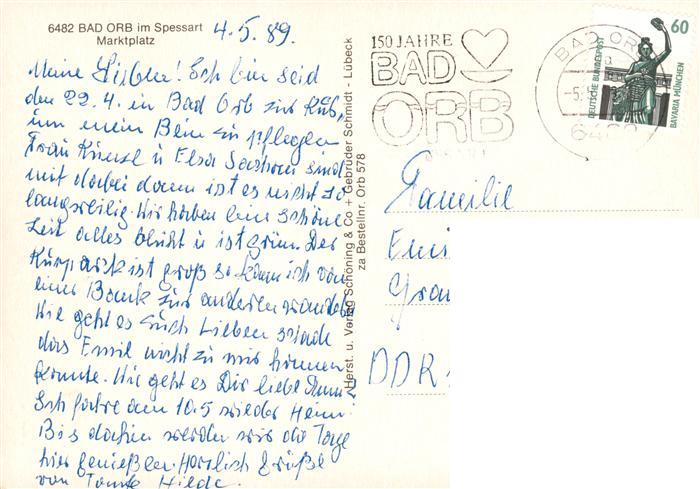 6482 BAD ORB im Spessart
Marktplatz
4.5.89.
Meine Lieben! Ich bin seid
den 29.4. in Bad Orb zur Kur,
um mein Beine zu pflegen
Frau Künzl u Elsa sind
mit dabei dann ist es nicht so
langweilig. Wir haben eine schöne
Zeit alles blüht u ist grün. Der
Kurpark ist groß so kann ich von
einer Bank zur anderen wandern
Wie geht es Euch Lieben schade
das Emil nicht zu mir kommen
konnte. Wie geht es Dir liebe
Ich fahre am 10.5 wieder Heim
Bis dahin werden wir die Tage
hier genießen. Herzlich Grüße
von Tante Hilde.
Herst. u. Verlag Schöning & Co + Gebrüder Schmidt - Lübeck
za Bestellnr. Orb 578
150 JAHRE
BAD
ORB
BAD ORB
-5.
DEUTSCHE BUNDESPOST
60
BAVARIA MÜNCHEN
Familie
Emi
Gra
DDR